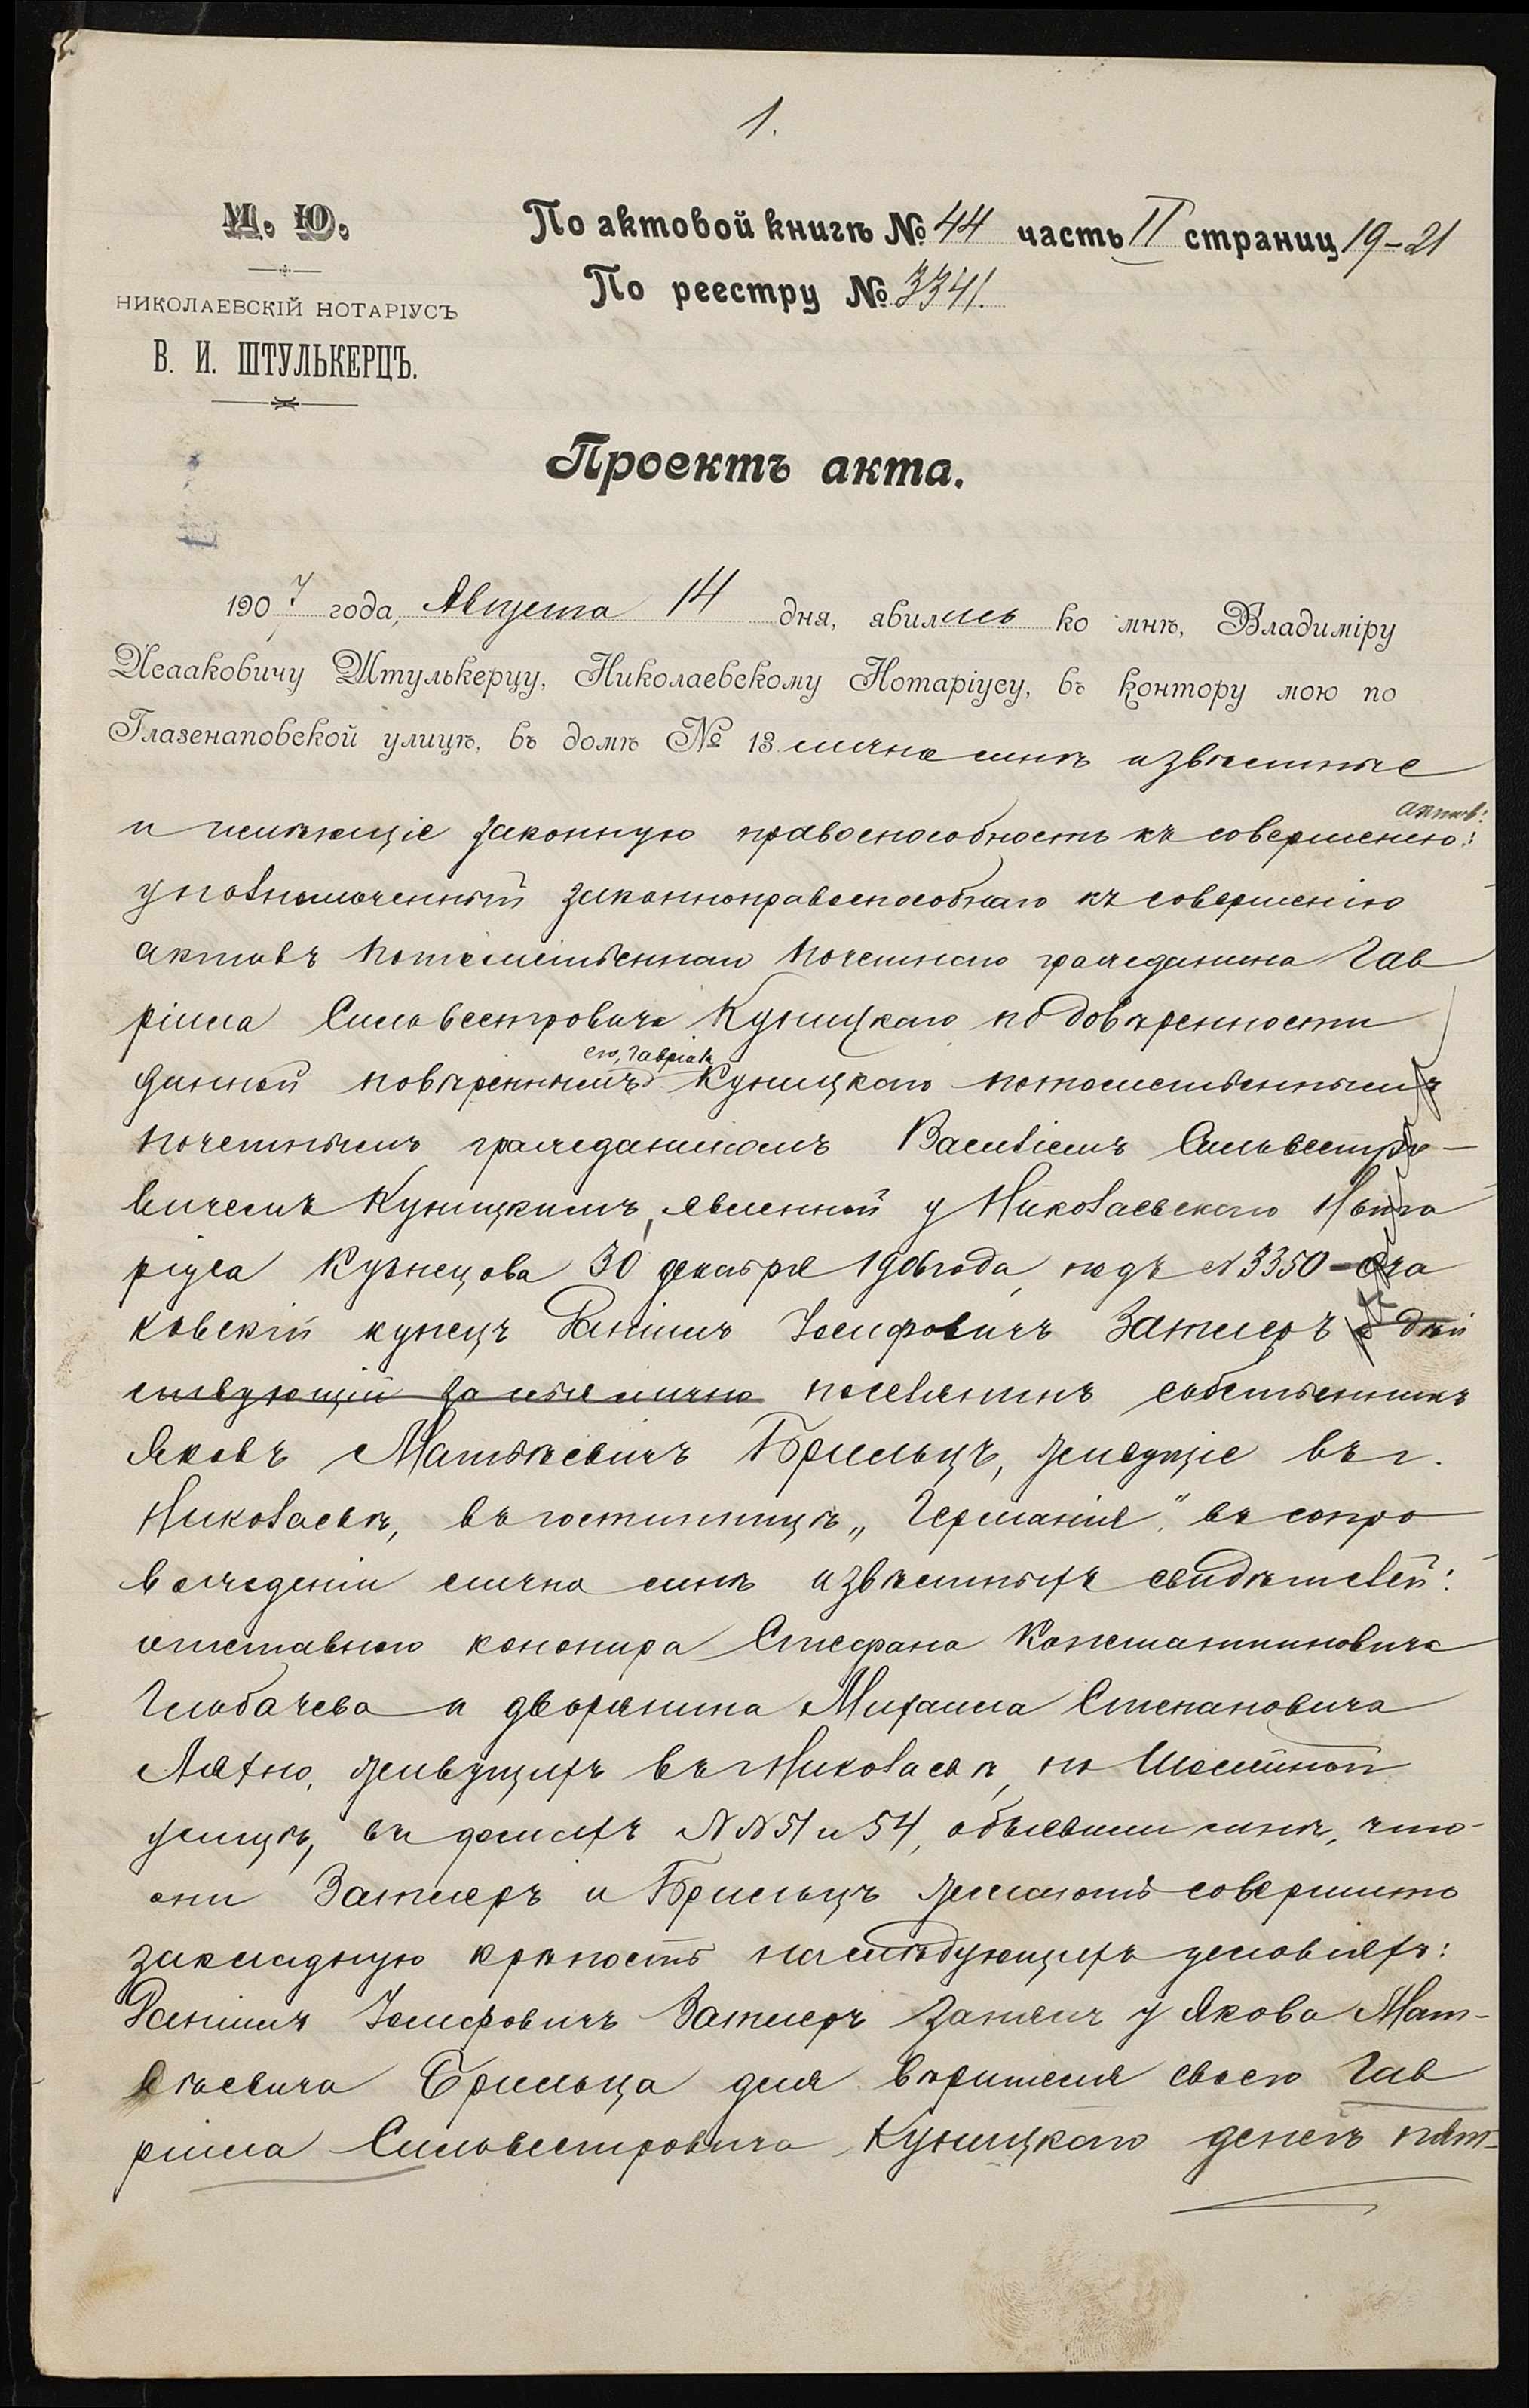 1.
М. Ю.
НИКОЛАЕВСКІЙ НОТАРІУСЪ
В. И. ШТУЛЬКЕРЦЪ.
По актовой книгѣ № 44 часть II страниц 19-21
По реестру № 3341.
Проектъ акта.
1907 года, Августа 14 дня, явились ко мнѣ, Владиміру
Исааковичу Штулькерцу, Николаевскому Нотаріусу, въ контору мою по
Глазенаповской улицѣ, въ домѣ № 13 лично мнѣ извѣстные
и имѣющіе законную правоспособность къ совершенію актов:
уполномоченный законноправоспособнаго къ совершенію
актовъ потомственнаго почетнаго гражданина Гав
ріила Сильвестровича Куницкаго по довѣренности
данной повѣреннымъ его, Гавріила Куницкаго потомственнымъ
почетнымъ гражданиномъ Василіемъ Сильвестро-
вичемъ Куницкимъ, явленной у Николаевскаго Нота
ріуса Кузнецова 30 декабря 1906 года, подъ № 3350 - Оча
ковскій купецъ Іосифовичъ Затлеръ и дѣй
ствующій за себя лично поселянинъ собственникъ
Яковъ Матвѣевичъ Брильцъ, живущіе въ г.
Николаевѣ, въ гостинницѣ „Германія", въ сопро
вожденіи лично мнѣ извѣстныхъ свидѣтелей:
отставного канонира Стефана Константиновича
Глобачева и дворянина Михаила Степановича
живущихъ въ Николаевѣ, по
улицѣ, въ домахъ №№ 51 и 54, объявили мнѣ, что
они Затлеръ и Брильцъ желаютъ совершить
закладную крѣпость на слѣдующихъ условіяхъ:
Іосифовичъ Затлеръ занялъ у Якова Мат-
вѣевича Брильца для вѣрителя своего Гав
ріила Сильвестровича Куницкаго денегъ пят-